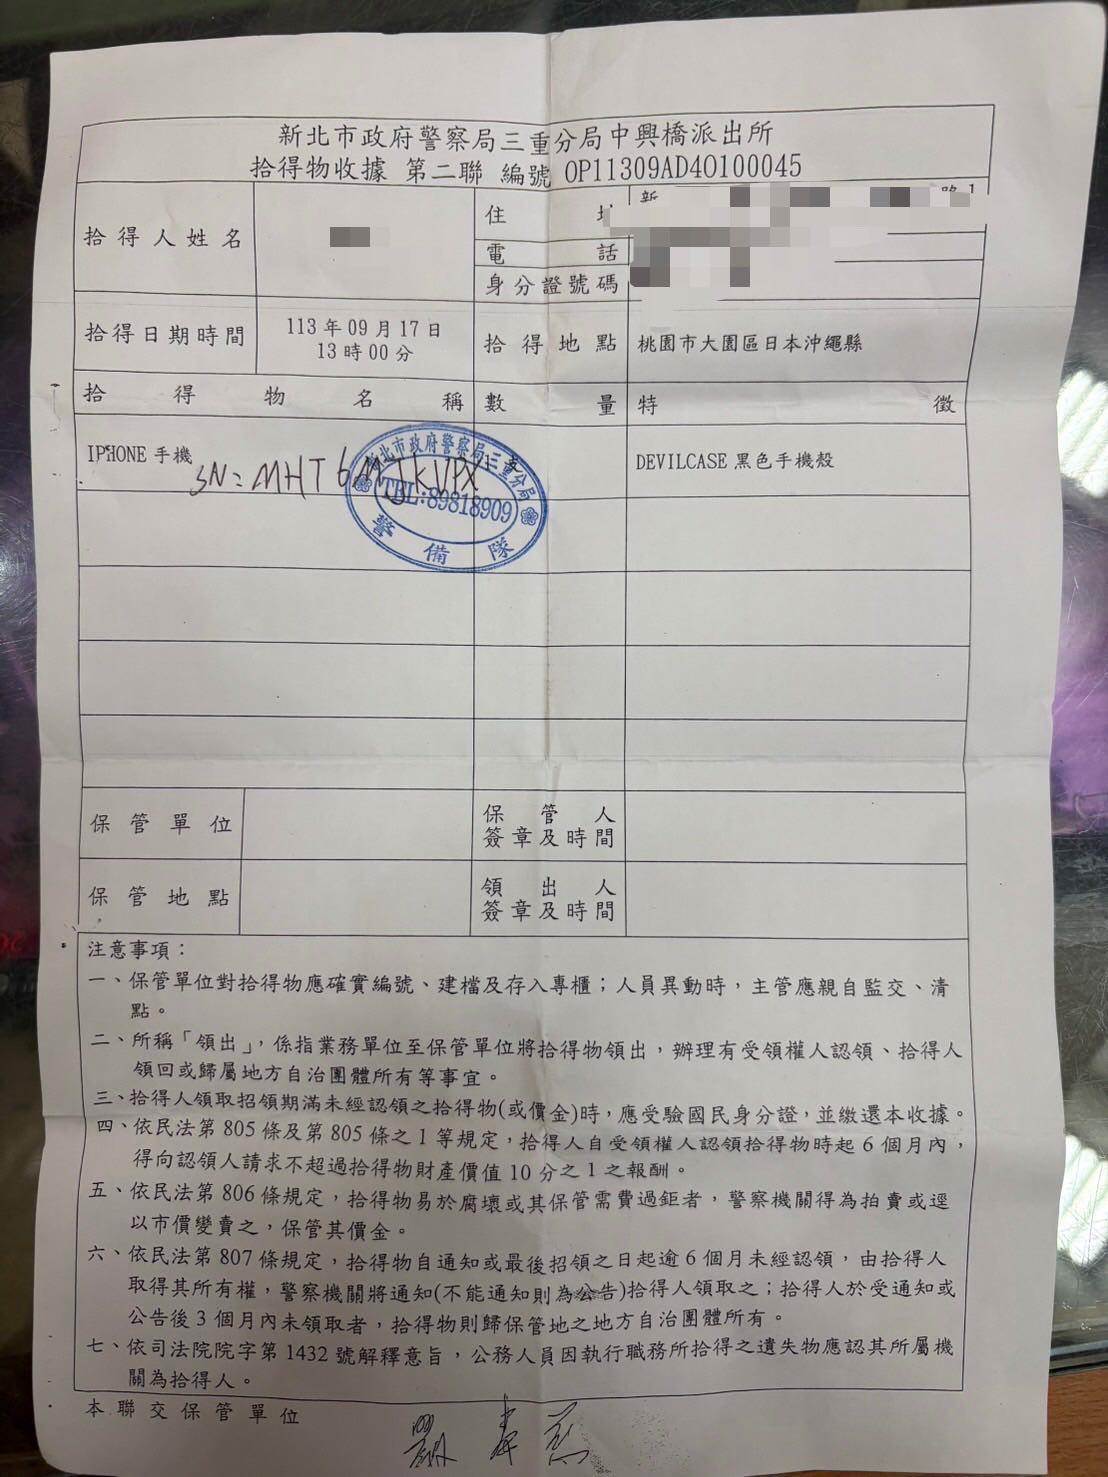 新北市政府警察局三重分局中興橋派出所
拾得物收據 第二聯 編號 OP11309AD40100045
拾得人姓名
住址 新 路1
電話
身分證號碼
拾得日期時間 113年09月17日
13時00分
拾得地點 桃園市大園區日本沖繩縣
拾得物名稱 數量 特徵
IPHONE 手機 DEVILCASE 黑色手機殼
SN: MHT6MJKVPX
新北市政府警察局三重分局
TEL:89818909
警備隊
保管單位 保管人
簽章及時間
保管地點 領出人
簽章及時間
注意事項:
一、保管單位對拾得物應確實編號、建檔及存入專櫃;人員異動時,主管應親自監交、清
點。
二、所稱「領出」,係指業務單位至保管單位將拾得物領出,辦理有受領權人認領、拾得人
領回或歸屬地方自治團體所有等事宜。
三、拾得人領取招領期滿未經認領之拾得物(或價金)時,應受驗國民身分證,並繳還本收據。
四、依民法第 805 條及第 805 條之 1 等規定,拾得人自受領權人認領拾得物時起 6 個月內,
得向認領人請求不超過拾得物財產價值 10 分之 1 之報酬。
五、依民法第 806 條規定,拾得物易於腐壞或其保管需費過鉅者,警察機關得為拍賣或逕
以市價變賣之,保管其價金。
六、依民法第 807 條規定,拾得物自通知或最後招領之日起逾 6 個月未經認領,由拾得人
取得其所有權,警察機關將通知(不能通知則為公告)拾得人領取之;拾得人於受通知或
公告後 3 個月內未領取者,拾得物則歸保管地之地方自治團體所有。
七、依司法院院字第 1432 號解釋意旨,公務人員因執行職務所拾得之遺失物應認其所屬機
關為拾得人。
本聯交保管單位